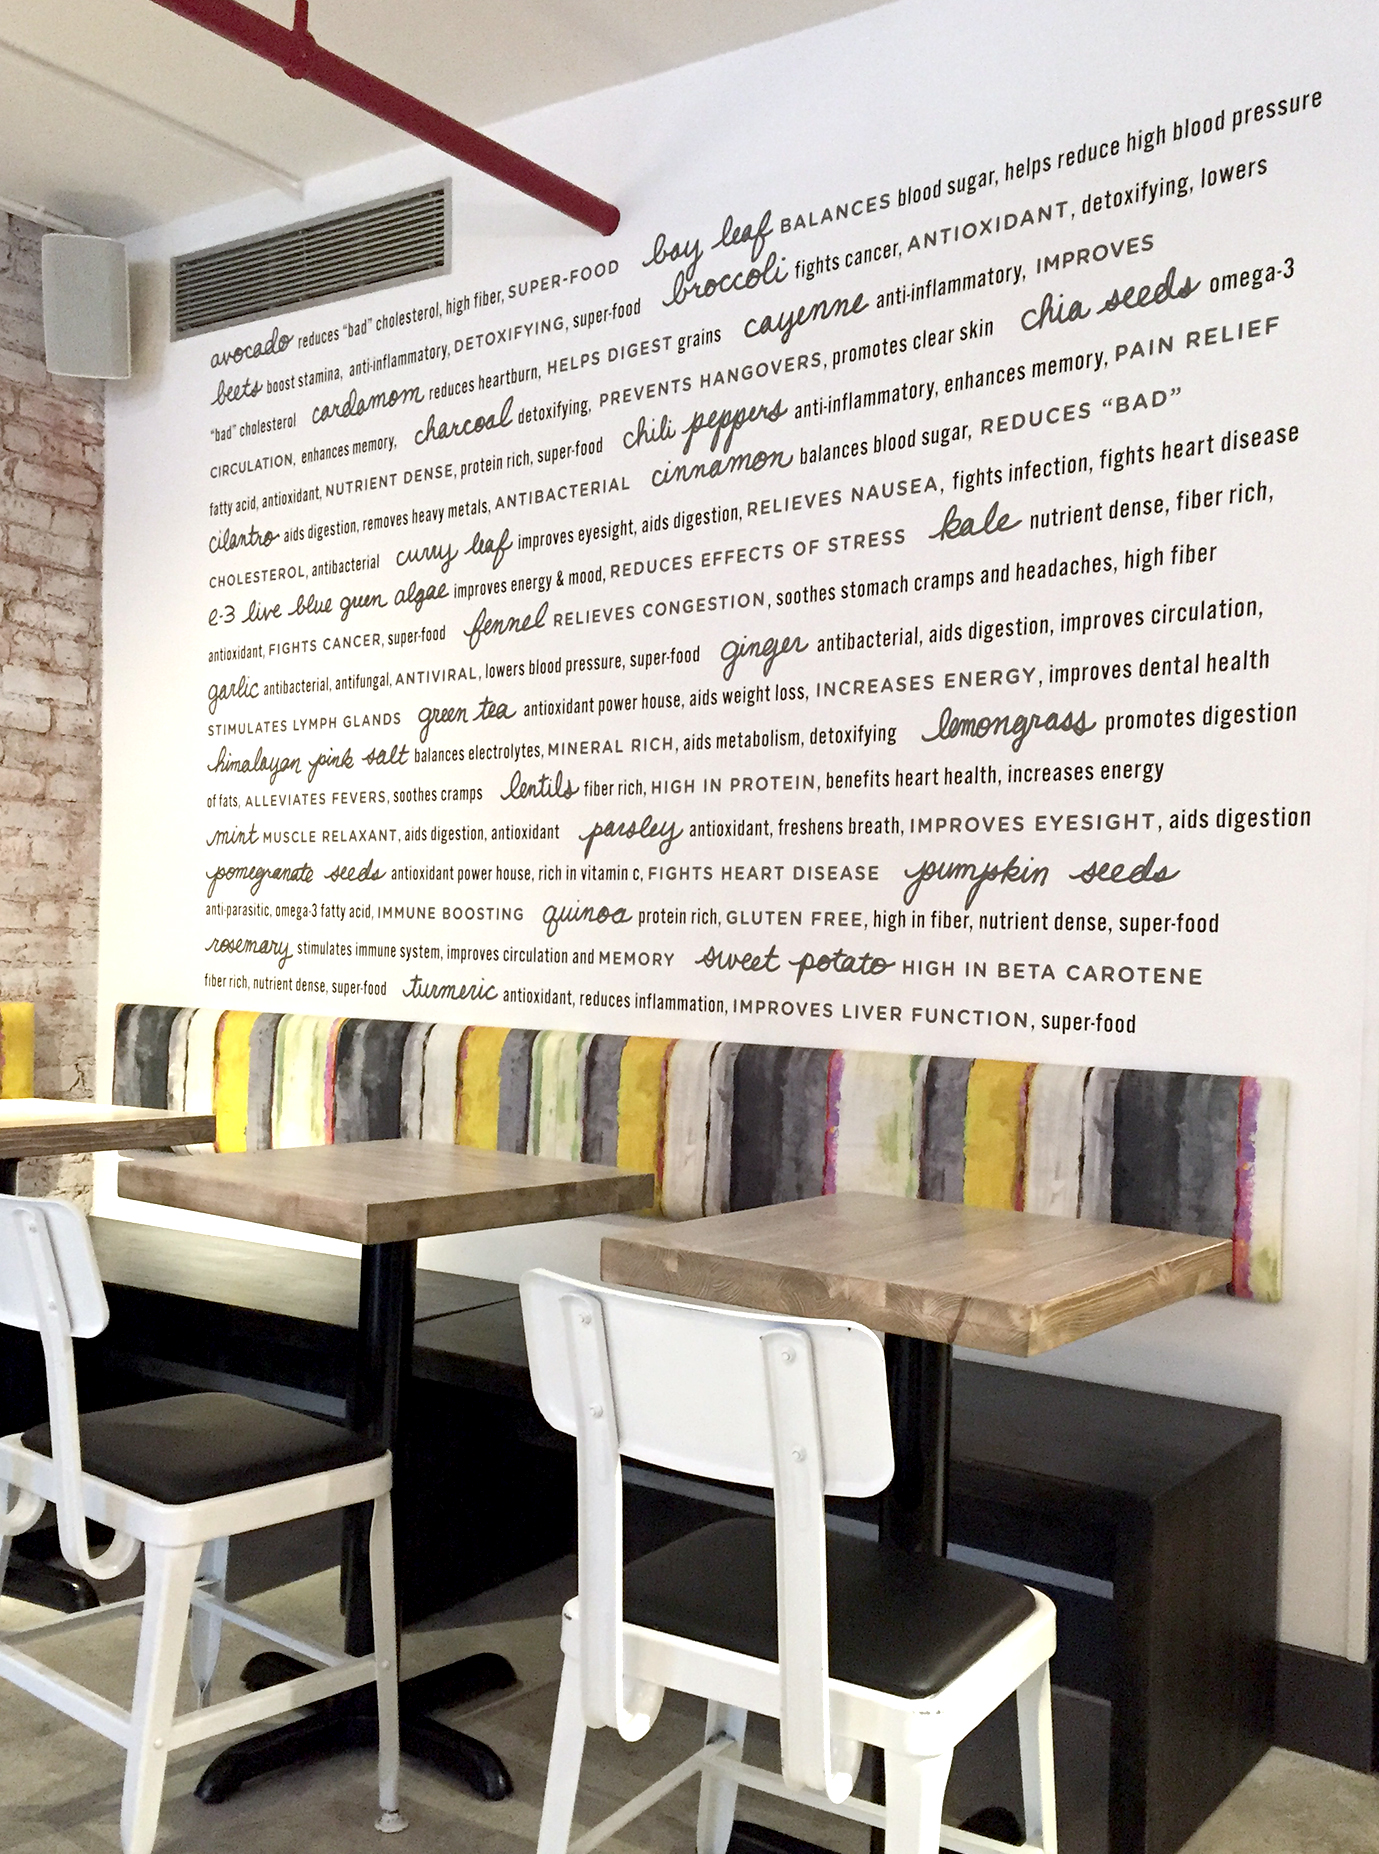 avocado reduces “bad” cholesterol, high fiber, SUPER-FOOD bay leaf BALANCES blood sugar, helps reduce high blood pressure
beets boost stamina, anti-inflammatory, DETOXIFYING, super-food broccoli fights cancer, ANTIOXIDANT, detoxifying, lowers
“bad” cholesterol cardamom reduces heartburn, HELPS DIGEST grains cayenne anti-inflammatory, IMPROVES
CIRCULATION, enhances memory, charcoal detoxifying, PREVENTS HANGOVERS, promotes clear skin chia seeds omega-3
fatty acid, antioxidant, NUTRIENT DENSE, protein rich, super-food chili peppers anti-inflammatory, enhances memory, PAIN RELIEF
cilantro aids digestion, removes heavy metals, ANTIBACTERIAL cinnamon balances blood sugar, REDUCES “BAD”
CHOLESTEROL, antibacterial curry leaf improves eyesight, aids digestion, RELIEVES NAUSEA, fights infection, fights heart disease
e-3 live blue green algae improves energy & mood, REDUCES EFFECTS OF STRESS kale nutrient dense, fiber rich,
antioxidant, FIGHTS CANCER, super-food fennel RELIEVES CONGESTION, soothes stomach cramps and headaches, high fiber
garlic antibacterial, antifungal, ANTIVIRAL, lowers blood pressure, super-food ginger antibacterial, aids digestion, improves circulation,
STIMULATES LYMPH GLANDS green tea antioxidant power house, aids weight loss, INCREASES ENERGY, improves dental health
himalayan pink salt balances electrolytes, MINERAL RICH, aids metabolism, detoxifying lemongrass promotes digestion
of fats, ALLEVIATES FEVERS, soothes cramps lentils fiber rich, HIGH IN PROTEIN, benefits heart health, increases energy
mint MUSCLE RELAXANT, aids digestion, antioxidant parsley antioxidant, freshens breath, IMPROVES EYESIGHT, aids digestion
pomegranate seeds antioxidant power house, rich in vitamin c, FIGHTS HEART DISEASE pumpkin seeds
anti-parasitic, omega-3 fatty acid, IMMUNE BOOSTING quinoa protein rich, GLUTEN FREE, high in fiber, nutrient dense, super-food
rosemary stimulates immune system, improves circulation and MEMORY sweet potato HIGH IN BETA CAROTENE
fiber rich, nutrient dense, super-food turmeric antioxidant, reduces inflammation, IMPROVES LIVER FUNCTION, super-food